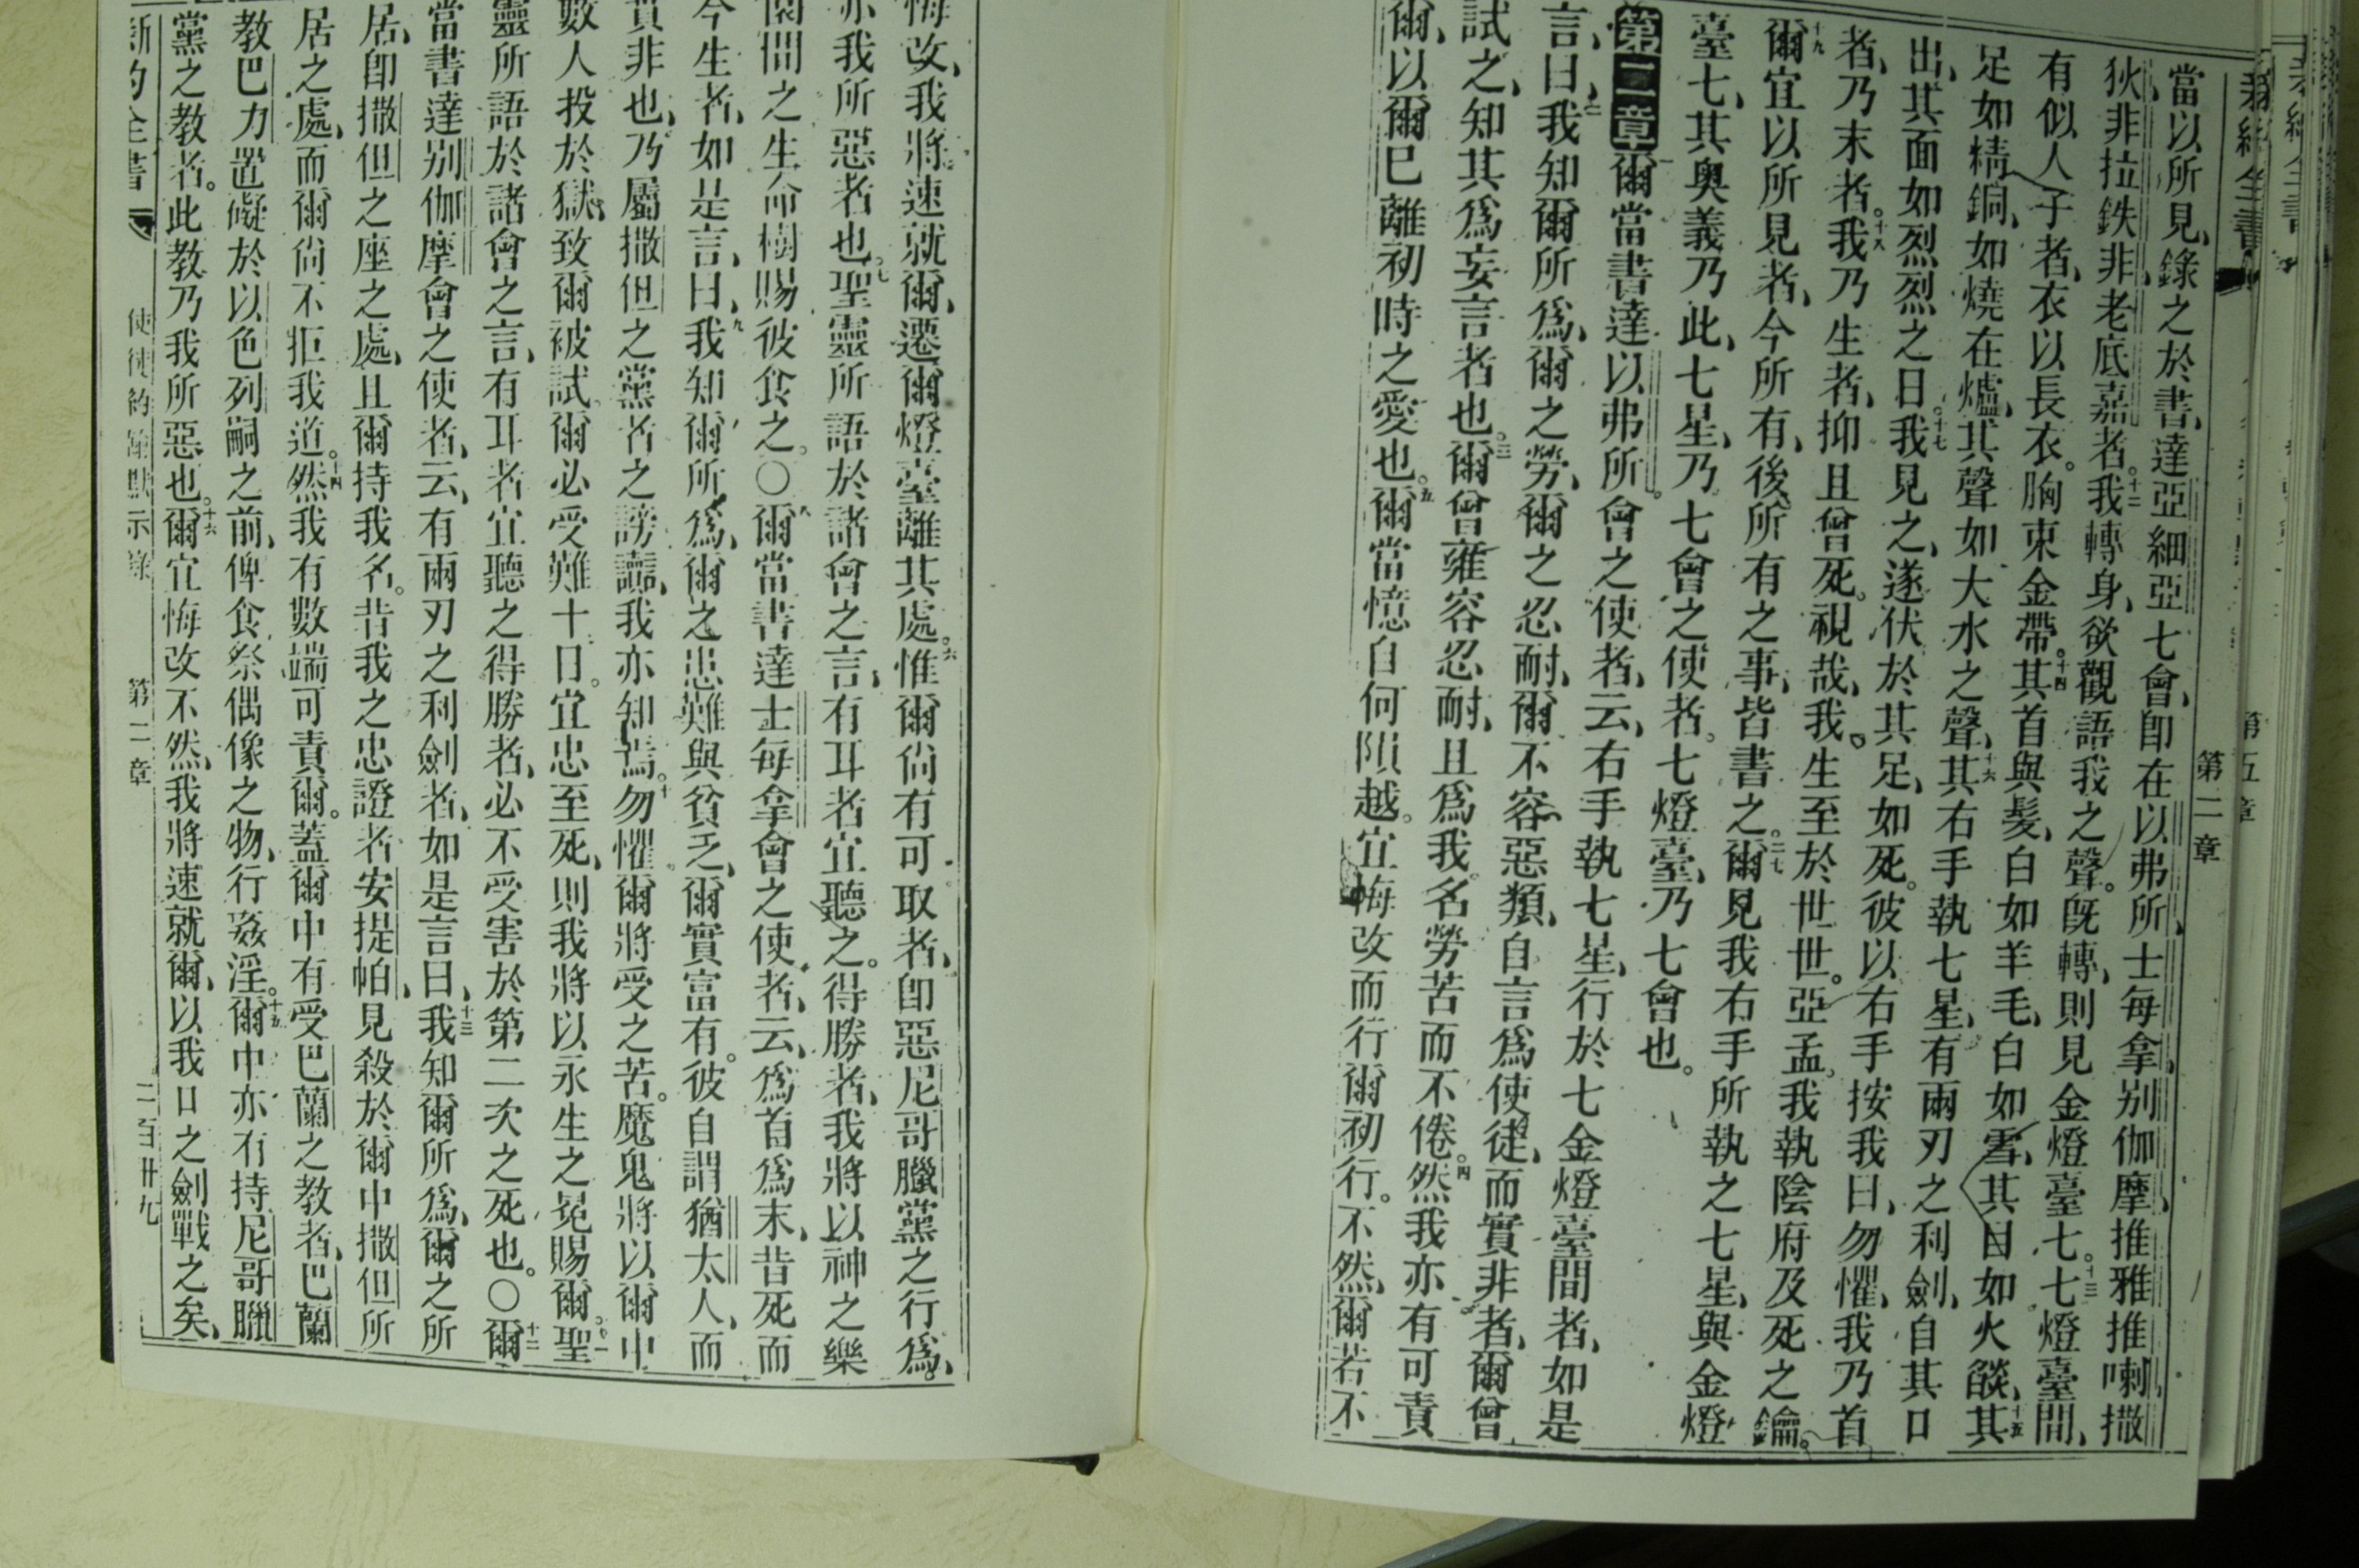 新約全書
第二章
第五章
當以所見、錄之於書、達亞細亞七會、卽在以弗所、士每拿、别伽摩、推雅推喇、撒
狄、非拉鉄非、老底嘉者。十二我轉身、欲觀語我之聲。旣轉、則見金燈臺七。十三七燈臺間、
有似人子者、衣以長衣。胸束金帶。十四其首與髮、白如羊毛、白如雪、其目如火燄、十五其
足如精銅、如燒在爐、其聲如大水之聲、十六其右手執七星、有兩刃之利劍、自其口
出、其面如烈烈之日。十七我見之、遂伏於其足、如死。彼以右手按我曰、勿懼、我乃首
者、乃末者。十八我乃生者、抑且曾死。視哉、我生至於世世。亞孟。我執陰府及死之鑰。
十九爾宜以所見者、今所有、後所有之事、皆書之。二十爾見我右手所執之七星、與金燈
臺七、其奧義乃此、七星、乃七會之使者。七燈臺、乃七會也。
第二章 一爾當書達以弗所。會之使者、云、右手執七星、行於七金燈臺間者、如是
言、曰、二我知爾所爲、爾之勞、爾之忍耐、爾不容惡類、自言爲使徒、而實非者、爾曾
試之、知其爲妄言者也。三爾曾雍容忍耐、且爲我名勞苦而不倦。四然我亦有可責
爾、以爾已離初時之愛也。五爾當憶自何隕越。宜悔改而行爾初行。不然、爾若不
悔改、我將速就爾、遷爾燈臺離其處。六惟爾尙有可取者、卽惡尼哥臘黨之行爲、
亦我所惡者也。七聖靈所語於諸會之言、有耳者宜聽之。得勝者、我將以神之樂
園間之生命樹賜彼食之。〇八爾當書達士每拿會之使者、云、爲首爲末、昔死而
今生者、如是言、曰、九我知爾所爲、爾之患難與貧乏、爾實富有。彼自謂猶太人、而
實非也、乃屬撒但之黨者之謗讟、我亦知焉。十勿懼爾將受之苦。魔鬼將以爾中
數人投於獄、致爾被試。爾必受難十日。宜忠至死、則我將以永生之冕賜爾。十一聖
靈所語於諸會之言、有耳者宜聽之、得勝者、必不受害於第二次之死也。〇十二爾
當書達别伽摩會之使者、云、有兩刃之利劍者、如是言曰、十三我知爾所爲、爾之所
居、卽撒但之座之處、且爾持我名。昔我之忠證者安提帕、見殺於爾中撒但所
居之處、而爾尙不拒我道。十四然我有數端可責爾。蓋爾中有受巴蘭之教者、巴蘭
教巴力置礙於以色列嗣之前、俾食祭偶像之物、行姦淫。十五爾中亦有持尼哥臘
黨之教者。此教乃我所惡也。十六爾宜悔改不然、我將速就爾、以我口之劍戰之矣、
新約全書
使徒約翰默示錄
第二章
二百卅九